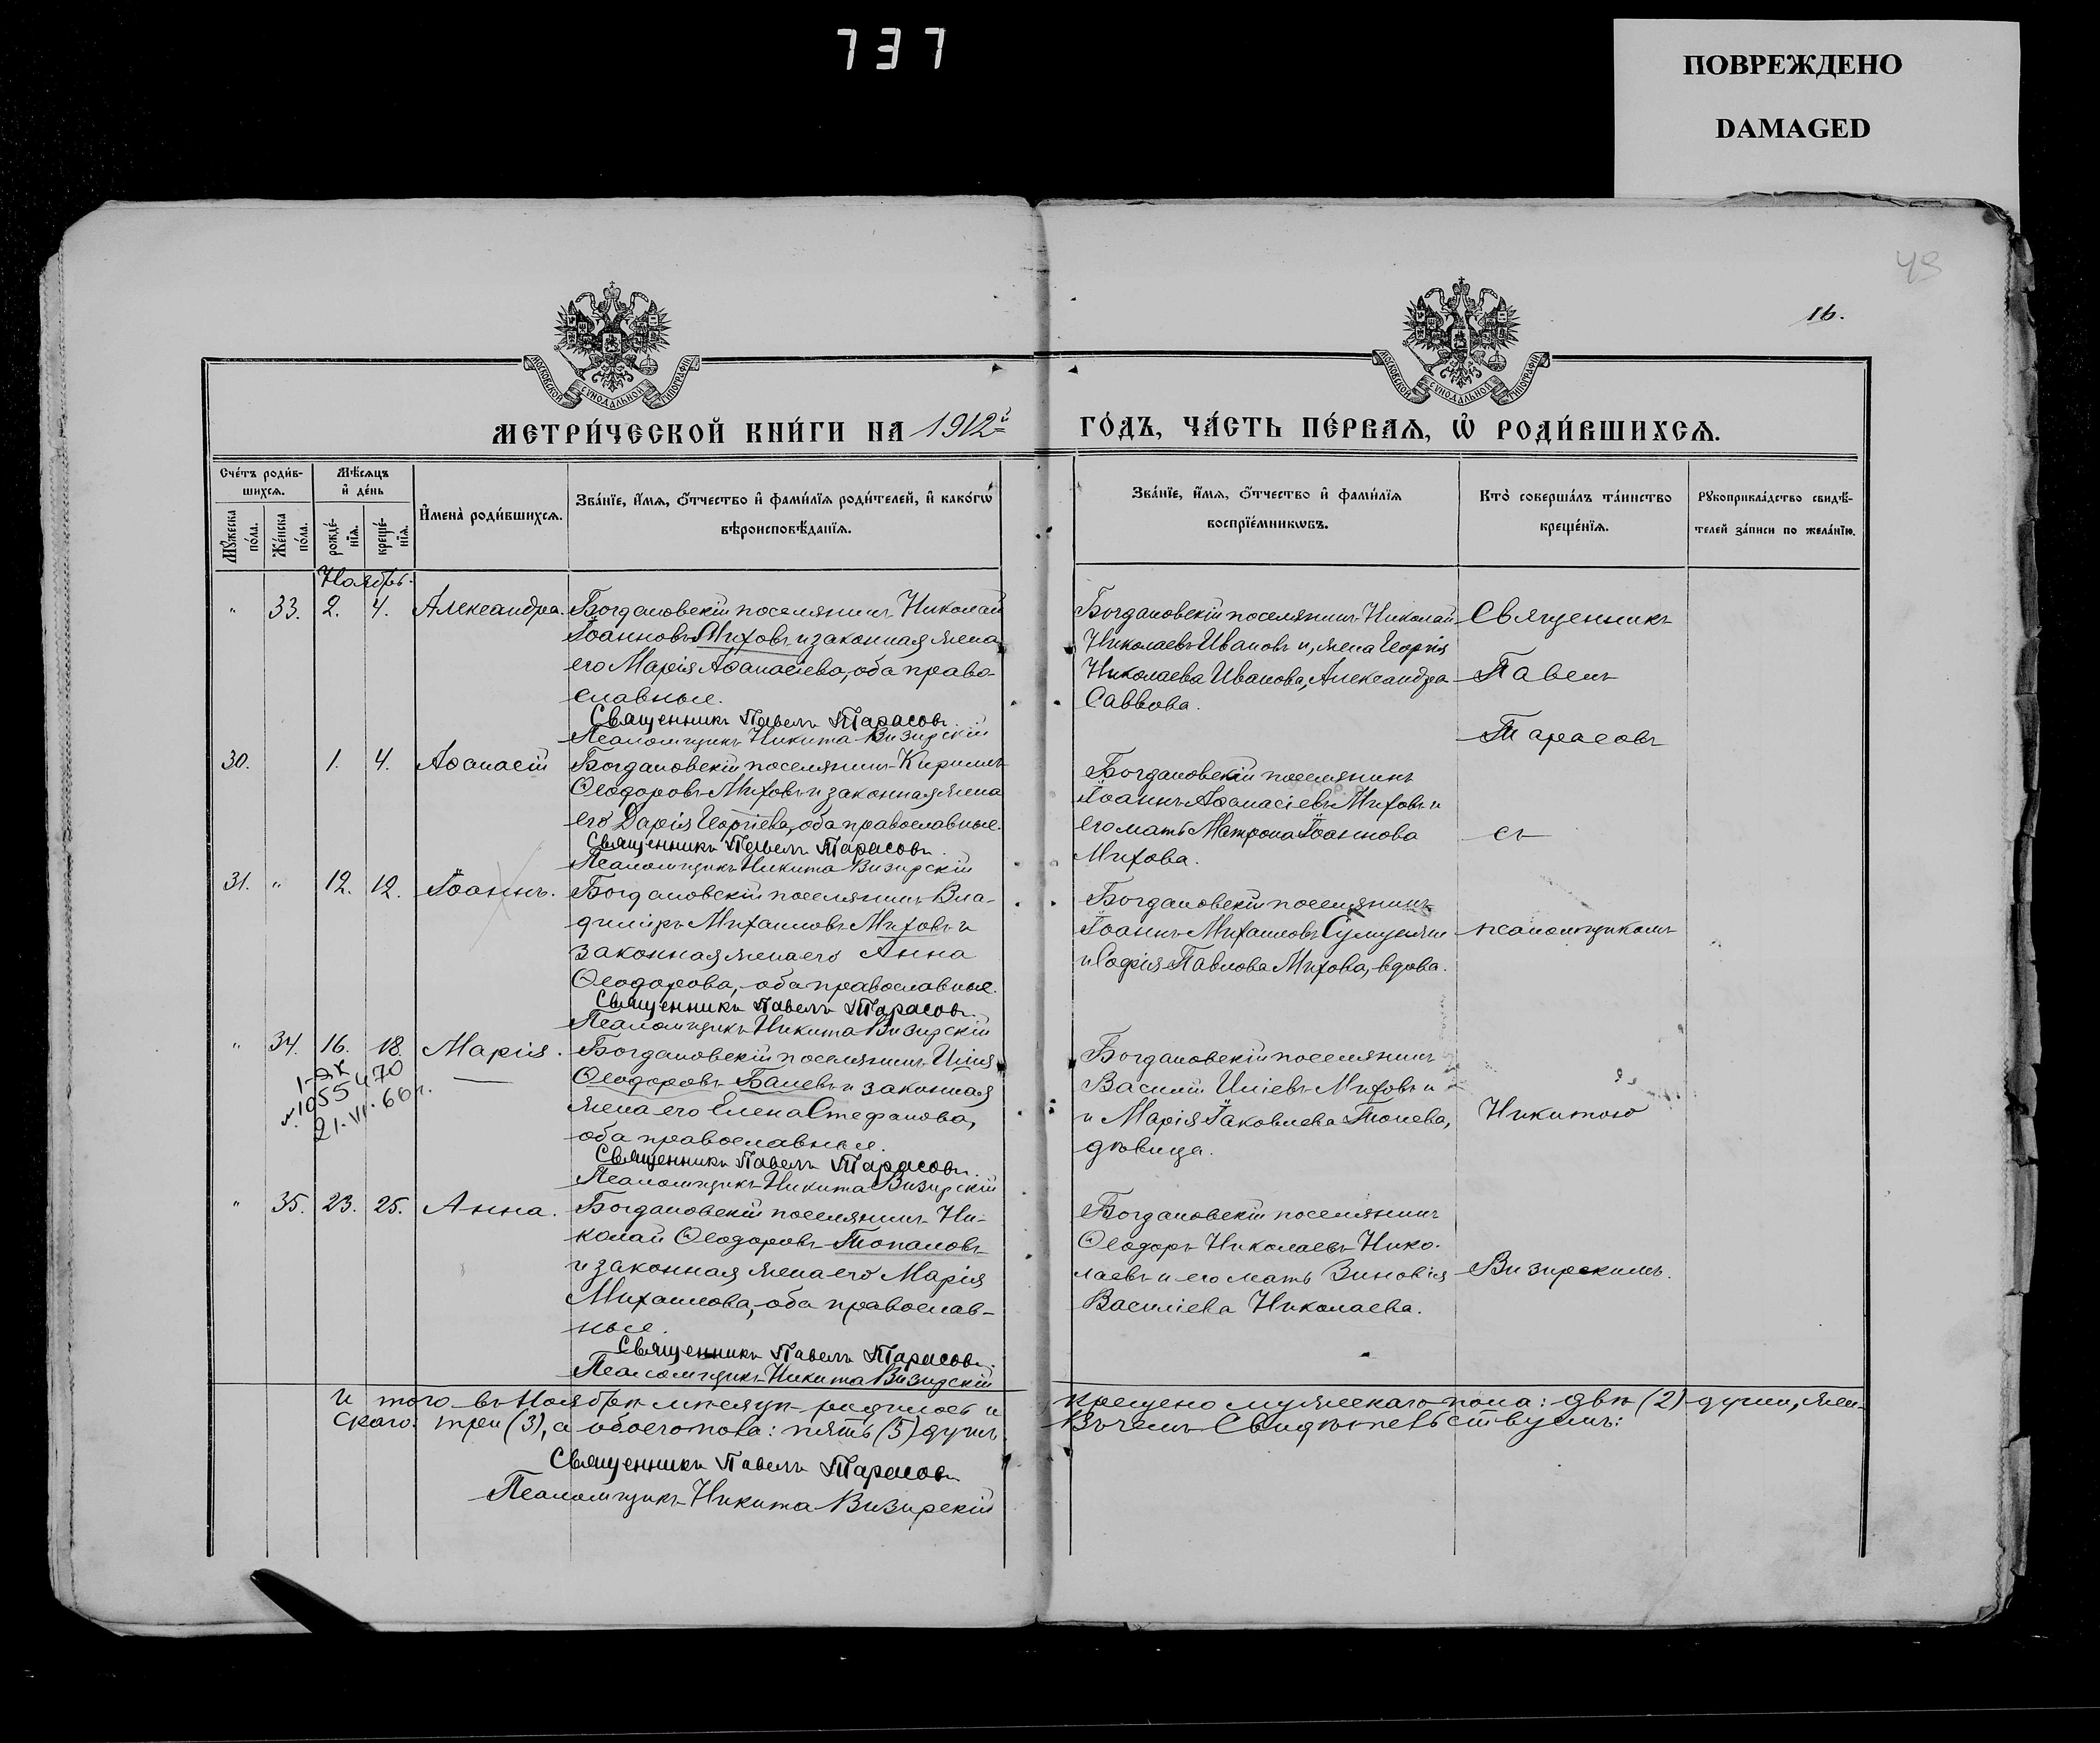 737
ПОВРЕЖДЕНО
DAMAGED
16.
МОСКОВСКОЙ СУНОДАЛЬНОЙ ТИПОГРАФІИ
МОСКОВСКОЙ СУНОДАЛЬНОЙ ТИПОГРАФІИ
МЕТРИ́ЧЕСКОЙ КНИ́ГИ НА 1912й
ГО́ДЪ, ЧА́СТЬ ПЕ́РВАѦ, Ѡ҆ РОДИ́ВШИХСѦ.
Сче́тъ роди́в-
шихсѧ.
Му́жеска по́ла.
Же́нска по́ла.
Мѣ́сѧцъ
и҆ де́нь
рожде́-
нїѧ.
креще́-
нїѧ.
И҆мена̀ роди́вшихсѧ.
Зва́нїе, и҆́мѧ, ѻ҆́тчество и҆ фами́лїѧ роди́телей, и҆ како́гѡ
вѣроисповѣ́данїѧ.
Зва́нїе, и҆́мѧ, ѻ҆́тчество и҆ фами́лїѧ
воспрїе́мникѡвъ.
Кто̀ соверша́лъ та́инство
креще́нїѧ.
Рꙋкоприкла́дство свидѣ́-
телей за́писи по жела́нїю.
Ноябрь.
" 33. 2. 4. Александра.
Богдановскій поселянинъ Николай
Іоанновъ Миховъ и законная жена
его Марія Аѳанасіева, оба право-
славные.
Священникъ Павелъ Тарасовъ.
Псаломщикъ Никита Визирскій
Богдановскій поселянинъ Николай
Николаевъ Ивановъ и, жена Георгія
Николаева Иванова, Александра
Саввова.
Священникъ
Павелъ
Тарасовъ
30. 1. 4. Аѳанасій
Богдановскій поселянинъ Кириллъ
Ѳеодоровъ Миховъ и законная жена
его Дарія Георгіева, оба православные.
Священникъ Павелъ Тарасовъ.
Псаломщикъ Никита Визирскій
Богдановскій поселянинъ
Іоаннъ Аѳанасіевъ Миховъ и
его мать Матрона Іоаннова
Михова.
съ
31. " 12. 12. Іоаннъ.
Богдановскій поселянинъ Вла-
диміръ Михаиловъ Миховъ и
законная жена его Анна
Ѳеодорова, оба православные.
Священникъ Павелъ Тарасовъ.
Псаломщикъ Никита Визирскій
Богдановскій поселянинъ
Іоаннъ Михаиловъ
и Софія Павлова Михова, вдова.
псаломщикомъ
" 34. 16. 18. Марія.
1-ЯК
№1055470
21.VI.66 г.
Богдановскій поселянинъ Илія
Ѳеодоровъ Балевъ и законная
жена его Елена Стефанова,
оба православные.
Священникъ Павелъ Тарасовъ.
Псаломщикъ Никита Визирскій
Богдановскій поселянинъ
Василій Иліевъ Миховъ и
и Марія Іаковлева Тонева,
дѣвица.
Никитою
" 35. 23. 25. Анна.
Богдановскій поселянинъ Ни-
колай Ѳеодоровъ Топаловъ
и законная жена его Марія
Михаилова, оба православ-
ные.
Священникъ Павелъ Тарасовъ.
Псаломщикъ Никита Визирскій
Богдановскій поселянинъ
Ѳеодоръ Николаевъ Нико-
лаевъ и его мать Зиновія
Василіева Николаева.
Визирскимъ.
И того въ Ноябрѣ мѣсяцѣ родилось и
крещено мужескаго пола: двѣ (2) души, жен-
скаго: три (3), а обоего пола: пять (5) душъ.
Въ чемъ Свидѣтельствуемъ:
Священникъ Павелъ Тарасовъ
Псаломщикъ Никита Визирскій